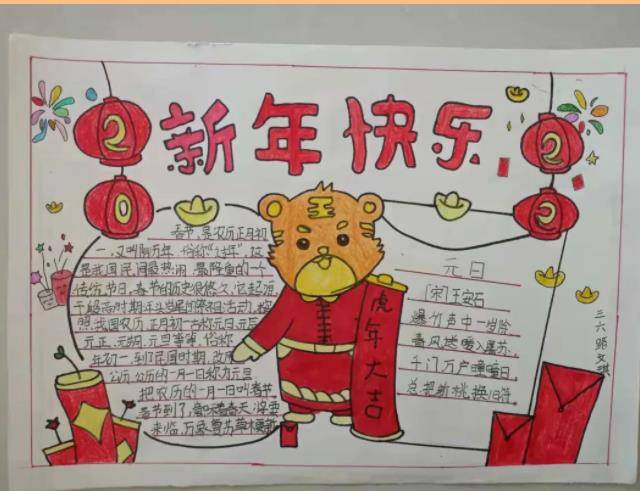 新年快乐
2
0
2
2
春节,是农历正月初
一,又叫阴历年,俗称“过年”,这
是我国民间最热闹、最隆重的一个
传统节日,春节的历史很悠久,它起源
于殷商时期年头岁尾的祭祀活动。按
照我国农历,正月初一古称元日、元辰、
元正、元朔、元旦等,俗称
年初一,到了民国时期,改用
公历,公历的一月一日称为元旦
把农历的一月一日叫春节
春节到了,意味着春天
来临,万象复苏草木更新
虎年大吉
元日
[宋]王安石
爆竹声中一岁除
春风送暖入屠苏.
千门万户曈曈日,
总把新桃换旧符.
三六